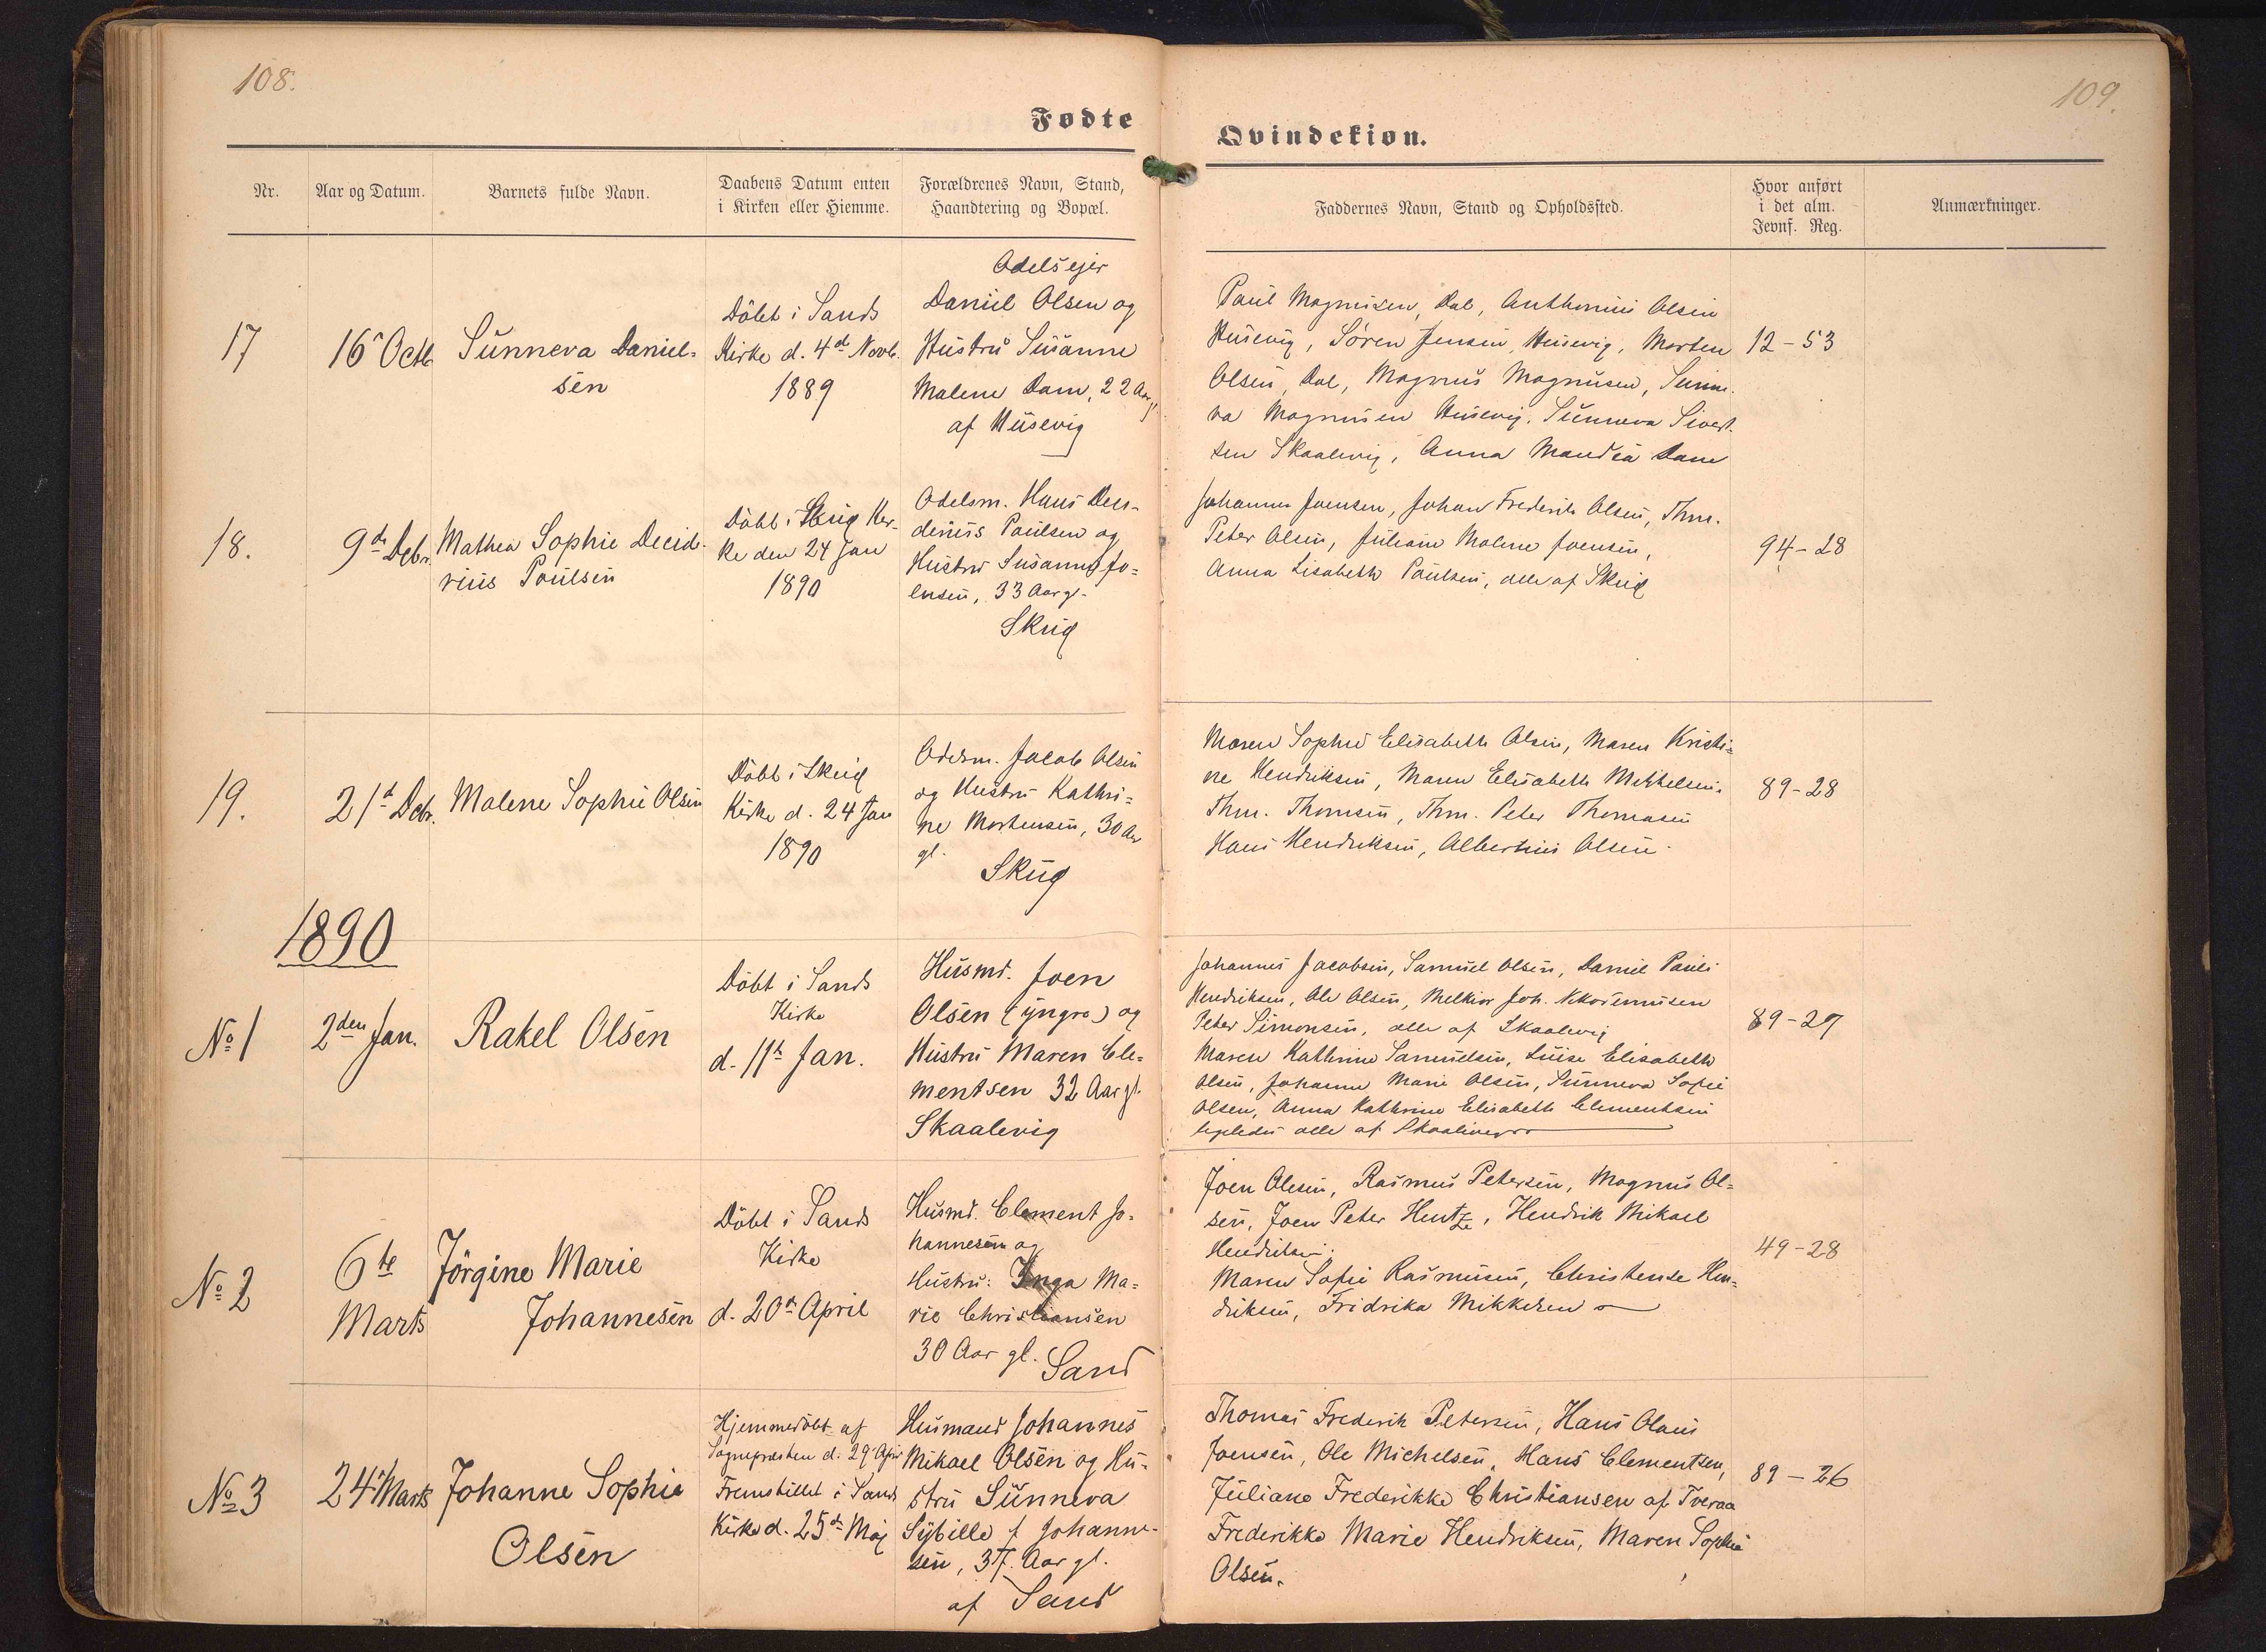 108.
Fødte
Nr.
Aar og Datum.
Barnets fulde Navn.
Daabens Datum enten
i Kirken eller Hiemme.
Forældrenes Navn, Stand,
Haandtering og Bopæl.
17
16 Octb
Sunneva Daniel-
sen
Döbt i Sands
Kirke d. 4de Novb.
1889
Odelsejer
Daniel Olsen og
Hustru Susanne
Malene Dam, 22 Aar gl
af Husevig
18.
9de Debr.
Mathea Sophie Decid-
rius Poulsen
Döbt i Skuø Kir-
ke den 24 Jan
1890
Odelsm. Hans Des-
derius Paulsen og
Hustru Susanna Jo-
ensen, 33 Aar gl.
Skuø
19.
21d Debr.
Malene Sophie Olsen
Döbt i Skuø
Kirke d. 24 Jan
1890
Odelsm. Jacob Olsen
og Hustru Kathri-
ne Mortensen, 30 Aar
gl.
Skuø
1890
No 1
2den Jan.
Rakel Olsen
Döbt i Sands
Kirke
d. 11te Jan.
Husmd. Joen
Olsen (yngre) og
Hustru Maren Cle-
mentsen 32 Aar gl.
Skaalevig
No 2
6te
Marts
Jörgine Marie
Johannesen
Döbt i Sands
Kirke
d. 20de April
Husmd. Clement Jo-
hannesen og
Hustru: Inga Ma-
rie Christiansen
30 Aar gl.
Sand
No 3
24d Marts
Johanne Sophie
Olsen
Hjemmedöbt af
Sognepræsten d. 29 April
Fremstillet i Sands
Kirke d. 25de Maj
Husmand Johannes
Mikael Olsen og Hu-
stru Sunneva
Sybille f. Johanne-
sen, 37 Aar gl.
af Sand
109.
Qvindekiøn.
Faddernes Navn, Stand og Opholdssted.
Hvor anført
i det alm.
Jevnf. Reg.
Anmærkninger.
Paul Magnusen, Dal, Anthonius Olsen
Husevig, Søren Jensen, Husevig, Morten
Olsen, Dal, Magnus Magnusen, Sunne-
va Magnusen Husevig, Sunneva Sivert-
sen Skaalevig, Anna Dam
12-53
Johannes Joensen, Johan Frederik Olsen, Thm.
Peter Olsen, Juliane Malene Joensen,
Anna Lisabeth Paulsen, alle af Skuø
94-28
Maren Sophie Elisabeth Olsen, Maren Kristi-
ne Hendriksen, Maren Elisabeth Mikkelsen.
Thm. Thomsen, Thm. Peter Thomasen
Hans Hendriksen, Albertius Olsen.
89-28
Johannes Jacobsen, Samuel Olsen, Daniel Pauli
Hendriksen, Ole Olsen, Melkior Joh. Nikodemusen
Peter Simonsen, alle af Skaalevig
Maren Kathrine Samuelsen, Luise Elisabeth
Olsen, Johanne Marie Olsen, Sunneva Sofie
Olsen, Anna Kathrine Elisabeth Clementsen
ligeledes alle af Skaalevig
89-27
Joen Olesen, Rasmus Petersen, Magnus Ol-
sen, Joen Peter Hentze, Hendrik Mikael
Hendriksen.
Maren Sofie Rasmusen, Christense Hen-
driksen, Fridrika Mikkelsen
49-28
Thomas Frederik Petersen, Hans Olaus
Joensen, Ole Michelsen, Hans Clementsen,
Juliane Frederikke Christiansen af Tveraa
Frederikke Marie Hendriksen, Maren Sophie
Olsen.
89-26